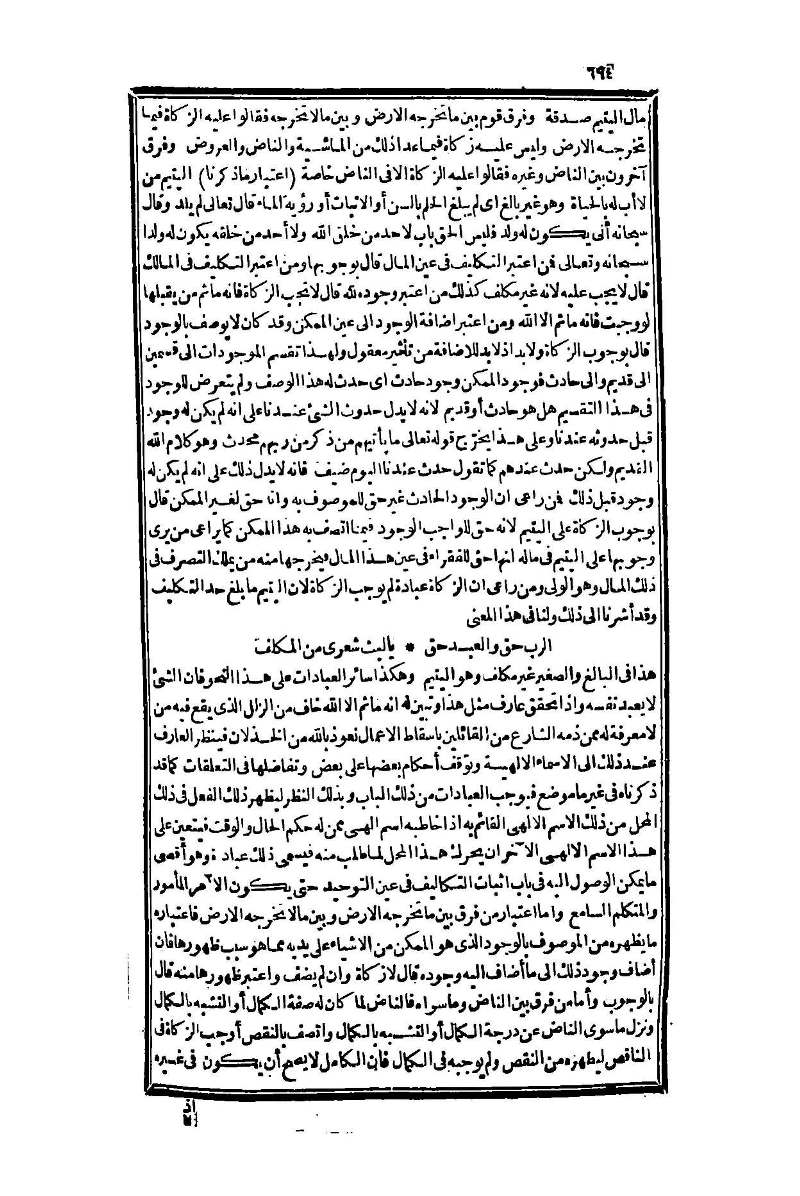 ٦٩٤
مال اليتيم صدقة وفرق قوم بين ما تخرجه الارض وبين مالا تخرجه فقالوا عليه الزكاة فيما
تخرجه الارض وليس عليه زكاة فيما عدا ذلك من الماشية والناض والعروض وفرق
آخرون بين الناض وغيره فقالوا عليه الزكاة الا فى الناض خاصة (اعتبار ما ذكرنا) اليتيم من
لا أب له بالحياة وهو غير بالغ اى لم يبلغ الحلم بالسن أو الانبات أو رؤية الماء قال تعالى لم يلد وقال
سبحانه أنى يكون له ولد فليس الحق باب لاحد من خلق الله ولا أحد من خلقه يكون له ولدا
سبحانه وتعالى فمن اعتبر التكليف فى عين المال قال بوجوبها ومن اعتبر التكليف فى المالك
قال لا يجب عليه لانه غير مكلف كذلك من اعتبر وجوده لله قال لا تجب الزكاة فانه ما ثم من يقبلها
لو وجبت فانه ما ثم الا الله ومن اعتبر اضافة الوجود الى عين الممكن وقد كان لا يوصف بالوجود
قال بوجوب الزكاة ولا بد اذ لا بد للاضافة من تأثير معقول ولهذا تقسم الموجودات الى قسمين
الى قديم والى حادث فوجود الممكن وجود حادث اى حدث له هذا الوصف ولم يتعرض للوجود
فى هذا التقسيم هل هو حادث أو قديم لانه لا يدل حدوث الشئ عندنا على انه لم يكن له وجود
قبل حدوثه عندنا وعلى هذا يخرج قوله تعالى ما يأتيهم من ذكر من ربهم محدث وهو كلام الله
القديم ولكن حدث عندهم كما تقول حدث عندنا اليوم ضيف فانه لا يدل ذلك على انه لم يكن له
وجود قبل ذلك فمن راعى ان الوجود الحادث غير حق للموصوف به وانه حق لغير الممكن قال
بوجوب الزكاة على اليتيم لانه حق للواجب الوجود فيما اتصف به هذا الممكن كما يراعى من يرى
وجوبها على اليتيم فى ماله انها حق للفقراء فى عين هذا المال فيخرجها منه من يملك التصرف فى
ذلك المال وهو الولى ومن راعى ان الزكاة عبادة لم يوجب الزكاة لان اليتيم ما بلغ حد التكليف
وقد أشرنا الى ذلك ولنا فى هذا المعنى
الرب حق والعبد حق * يا ليت شعرى من المكلف
هذا فى البالغ والصغير غير مكلف وهو اليتيم وهكذا سائر العبادات على هذا النحو فان الشئ
لا يعبد نفسه واذا تحقق عارف مثل هذا وتبين له انه ما ثم الا الله خاف من الزلل الذى يقع فيه من
لا معرفة له ممن ذمه الشارع من القائلين باسقاط الاعمال نعوذ بالله من الخذلان فينظر العارف
عند ذلك الى الاسماء الالهية وتوقف أحكام بعضها على بعض وتفاضلها فى التعلقات كما قد
ذكرناه فى غير ما موضع فيوجب العبادات من ذلك الباب وبذلك النظر ليظهر ذلك الفعل فى ذلك
المحل من ذلك الاسم الالهى القائم به اذا خاطبه اسم الهى ممن له حكم الحال والوقت فيتعين على
هذا الاسم الالهى الآخر ان يحرك هذا المحل لما طلب منه فيسمى ذلك عبادة وهو أقصى
ما يمكن الوصول اليه فى باب اثبات التكاليف فى عين التوحيد حتى يكون الآمر المأمور
والمتكلم السامع واما اعتبار من فرق بين ما تخرجه الارض وبين مالا تخرجه الارض فاعتباره
ما يظهره من الموصوف بالوجود الذى هو الممكن من الاشياء على يديه مما هو سبب ظهورها فان
أضاف وجود ذلك الى ما أضاف اليه وجوده قال لا زكاة وان لم يضف واعتبر ظهورها منه قال
بالوجوب وأما من فرق بين الناض وما سواه فالناض لما كان له صفة الكمال أو التشبه بالكمال
ونزل ما سوى الناض عن درجة الكمال أو التشبه بالكمال واتصف بالنقص أوجب الزكاة فى
الناقص ليطهره من النقص ولم يوجبه فى الكمال فان الكامل لا يصح أن يكون فى غيره
اذ